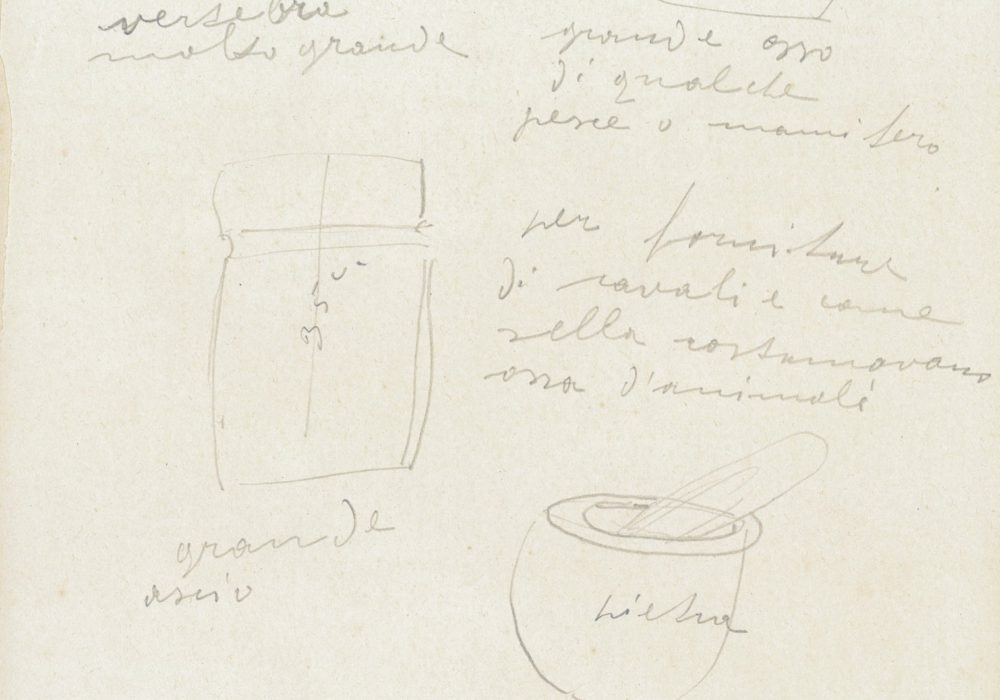 vertebra
molto grande
grande osso
di qualche
pesce o mamifero
per forniture
di cavali e come
sella costumavano
ossa d'animali
35
grande
ascio
pietra